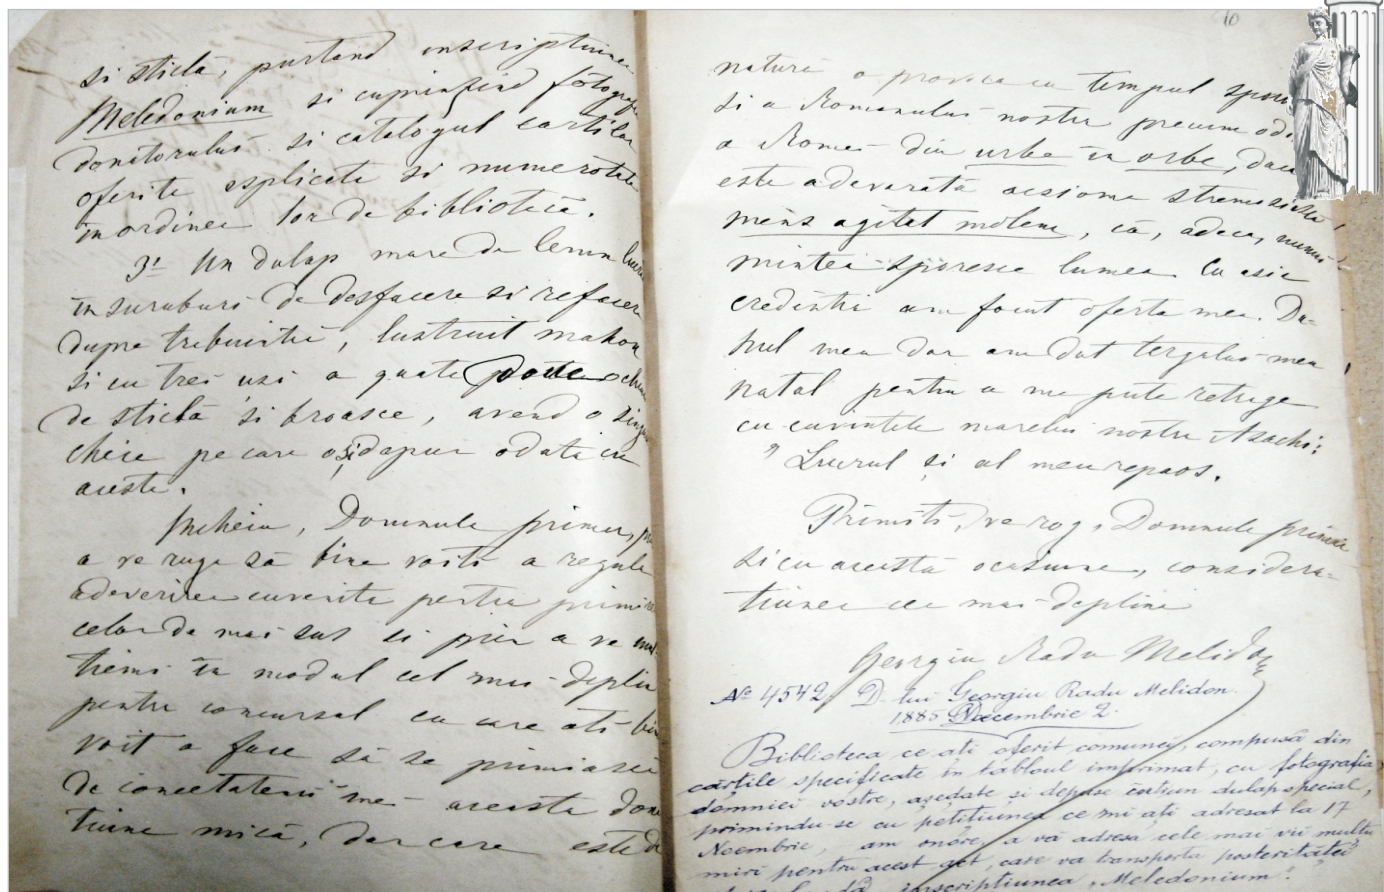 si sticlă, purtand inscriptiunea
Meledonium si cuprinzind fotografia
donatorului si catalogul cartilor
oferite esplicate si numerotate
in ordinea lor de bibliotecă.
3º Un dulap mare de lemn lucrat
in suruburi de desfacere si refacere
dupre trebuintiă, lustruit mahon
si cu trei usi a quate
de sticlă si broasce, avend o singura
cheie pe care o si depun odată cu
aceste.
Inchein, Domnule primar, prin
a ve ruga să bine voiti a regula
adeverirea cuvenita pentru primirea
celor de mai sus si prin a ve mul-
tiemi in modul cel mai deplin
pentru concursul cu care ati bine
voit a face să se primiască
de concetatenii mei aceasta dona-
tiune mică, dar care este de
10
natură a provoca cu tempul sporirea
si a Romanului nostru precum odi-
a Romei din urbe in orbe, daca
este adevarată acsioma stremosiloru
mens agitat molem, că, adeca, numai
mintea sporesce lumea. Cu asia
credintă am facut oferta mea. Du-
pul meu dar am dat tergului meu
natal pentru a me pute retrage
cu cuvintele marelui nostru Asachi:
" Lucrul si al meu repaos.
Primiti, ve rog, Domnule primar
si cu aceasta ocasiune, considera-
tiunea cea mai deplină
Georgiu Radu Melidon
Nº 4542. D-lui Georgiu Radu Melidon.
1885 Decembrie 2.
Biblioteca ce ati oferit comunei, compusă din
cărtile specificate in tabloul imprimat, cu fotografia
domniei vostre, asedate si depuse intr'un dulap special,
primindu-se cu petitiunea ce mi ati adresat la 17
Noembrie, am onóre, a vă adresa cele mai vii multu
miri pentru acest act, care va transporta posteritătei
inscriptiunea „Meledonium".